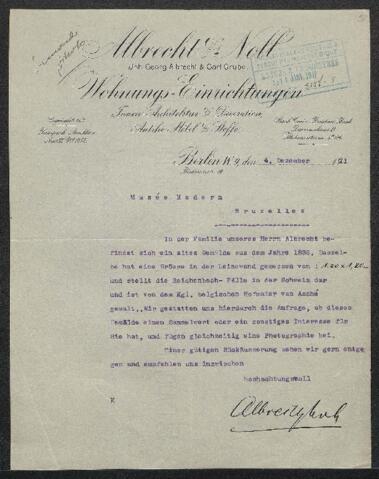 Albrecht & Noll
Inh. Georg Albrecht & Carl Grube
Wohnungs-Einrichtungen
Innere Architektur & Decoration
Antike Möbel & Stoffe
Berlin W. 9, den 4. Dezember 1921
Musée Modern
Bruxelles
In der Familie unseres Herrn Albrecht be-
findet sich ein altes Gemälde aus dem Jahre 1835, Dassel-
be hat eine Grösse in der Leinewand gemessen von : 1.20 x 1,20--
und stellt die Reichenbach-Fälle in der Schweiz dar
und ist von dem Kgl. belgischen Hofmaler van Assché
gemalt. Wir gestatten uns hierdurch die Anfrage, ob dieses
Gemälde einen Sammelwert oder ein sonstiges Interesse für
Sie hat, und fügen gleichzeitig eine Photographie bei.
Einer gütigen Rückäusserung sehen wir gern entge
gen und empfehlen uns inzwischen
hochachtungsvoll
K